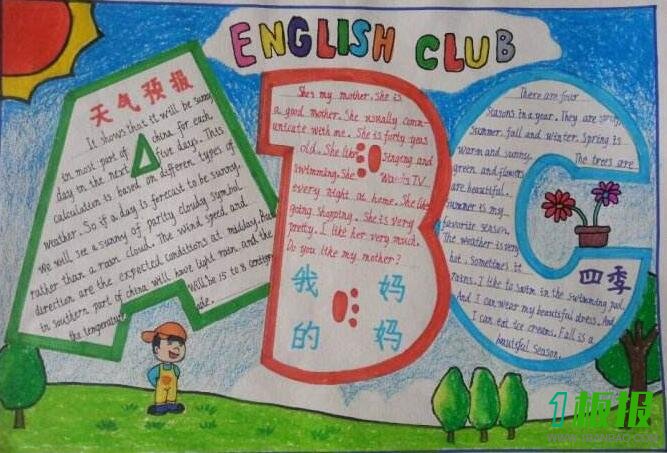 ENGLISH CLUB
天气预报
It shows that it will be sunny
in most part of china for each
day in the next five days. This
calculation is based on different types of
weather. So if a day is forecast to be sunny
we will see a sunny of partly cloudy symbol
rather than a rain cloud. The wind speed and
direction are the expected conditions at midday. And
in southern part of china will have light rain and the
the temperature will be 15 to 8 centigra
de.
She's my mother. She is
a good mother. She usually comm-
unicate with me. She is forty years
old. She like singing and
swimming. She Watch TV
every night at home. She like
going shopping. She is very
pretty. I like her very much.
Do you like my mother?
我 妈
的 妈
There are four
seasons in a year. They are spring,
summer, fall and winter. Spring is
warm and sunny. The trees are
green and flowers
are beautiful.
summer is my
favorite season.
The weather is very
hot. Sometimes it
rains. I like to swim in the swimming pool.
And I can wear my beautiful dress. And
I can eat ice creams. Fall is a
beautiful season.
四季
1板报